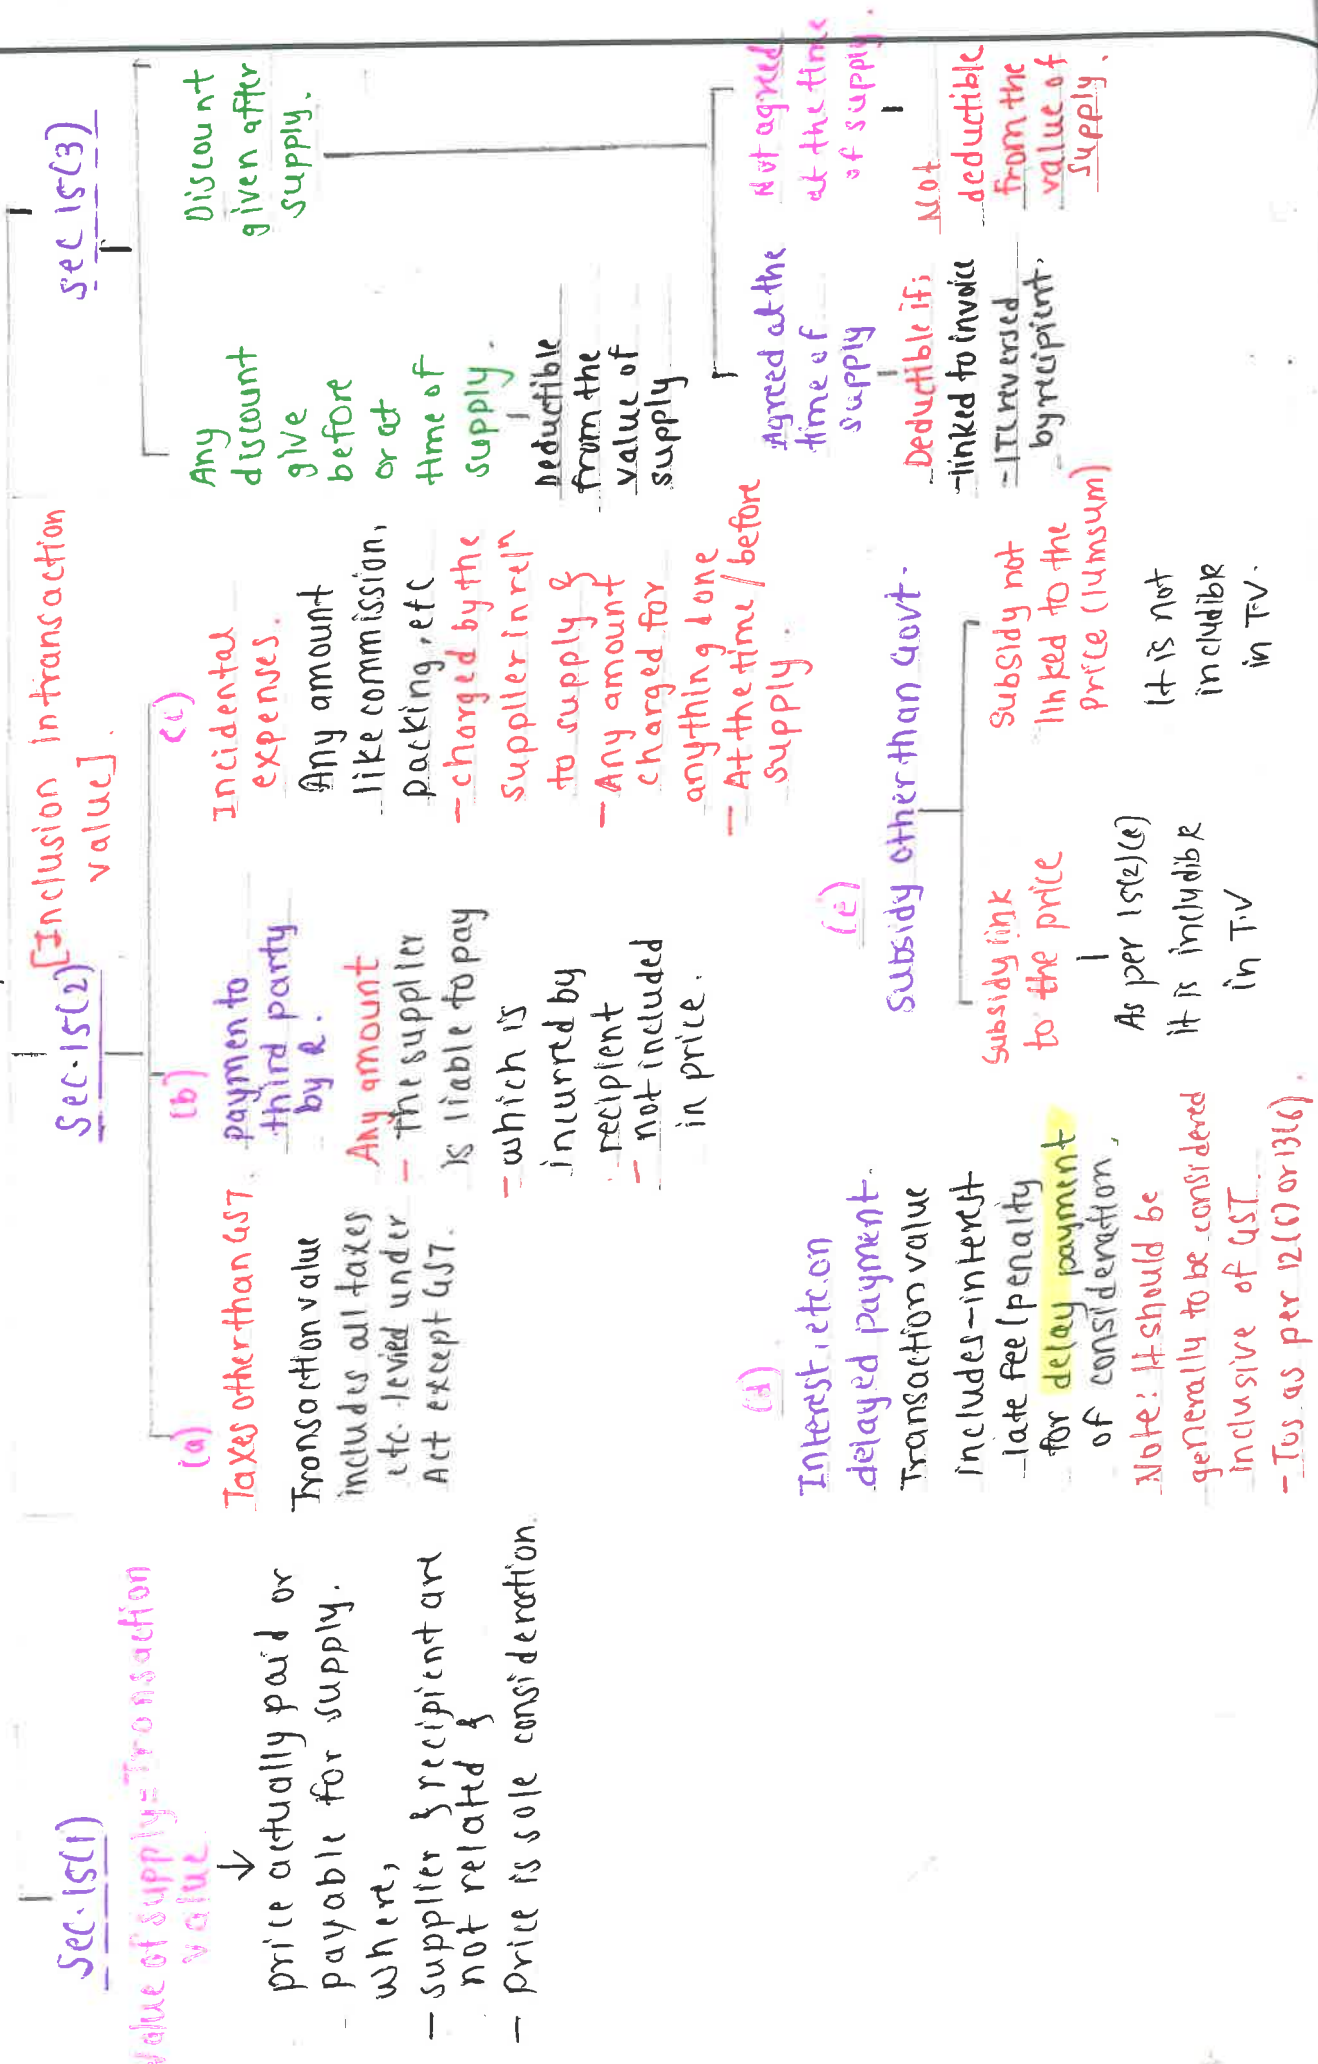 Sec.15(1)
Value of supply = Transaction
value
↓
price actually paid or
payable for supply.
where,
- supplier & recipient are
not related &
- price is sole consideration.
Sec.15(2) [Inclusion in transaction
value].
(a)
Taxes other than GST.
Transaction value
includes all taxes
etc. levied under
Act except GST.
(b)
payment to
third party
by R.
Any amount
- The supplier
is liable to pay
- which is
incurred by
recipient
- not included
in price.
(c)
Incidental
expenses.
Any amount
like commission,
packing, etc
- charged by the
supplier in relⁿ
to supply &
- Any amount
charged for
anything done
- At the time / before
supply.
(d)
Interest, etc. on
delayed payment.
Transaction value
includes - interest
late fee/penalty
for delay payment
of consideration.
Note: It should be
generally to be considered
inclusive of GST.
- TOS as per 12(6) or 13(6).
(e)
Subsidy other than Govt.
Subsidy link
to the price
As per 15(2)(e)
It is includible
in T.V
Subsidy not
linked to the
price (lumsum)
It is not
includible
in T.V.
Sec 15(3)
Any
discount
give
before
or at
time of
supply.
Deductible
from the
value of
supply
Discount
given after
supply.
Agreed at the
time of
supply
Deductible if;
- linked to invoice
- ITC reversed
by recipient.
Not agreed
at the time
of supply.
Not
deductible
from the
value of
supply.